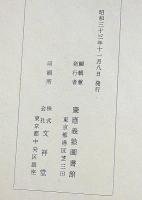 昭和三十三年十一月八日 発行
編輯兼
発行者
慶應義塾図書館
東京都港区芝三田
印刷所
株式
会社
文祥堂
東京都中央区銀座